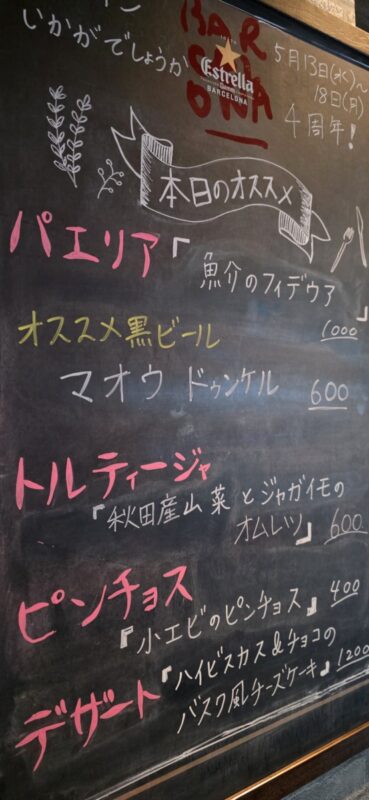 いかがでしょうか
BAR
CEL
ONA
Estrella
BARCELONA
5月13日(水)〜
18日(月)
4周年!
本日のオススメ
パエリア『魚介のフィデウア』
1000
オススメ黒ビール
マオウ ドゥンケル 600
トルティージャ
『秋田産山菜とジャガイモの
オムレツ』 600
ピンチョス
『小エビのピンチョス』 400
デザート『ハイビスカス&チョコの
バスク風チーズケーキ』 1200